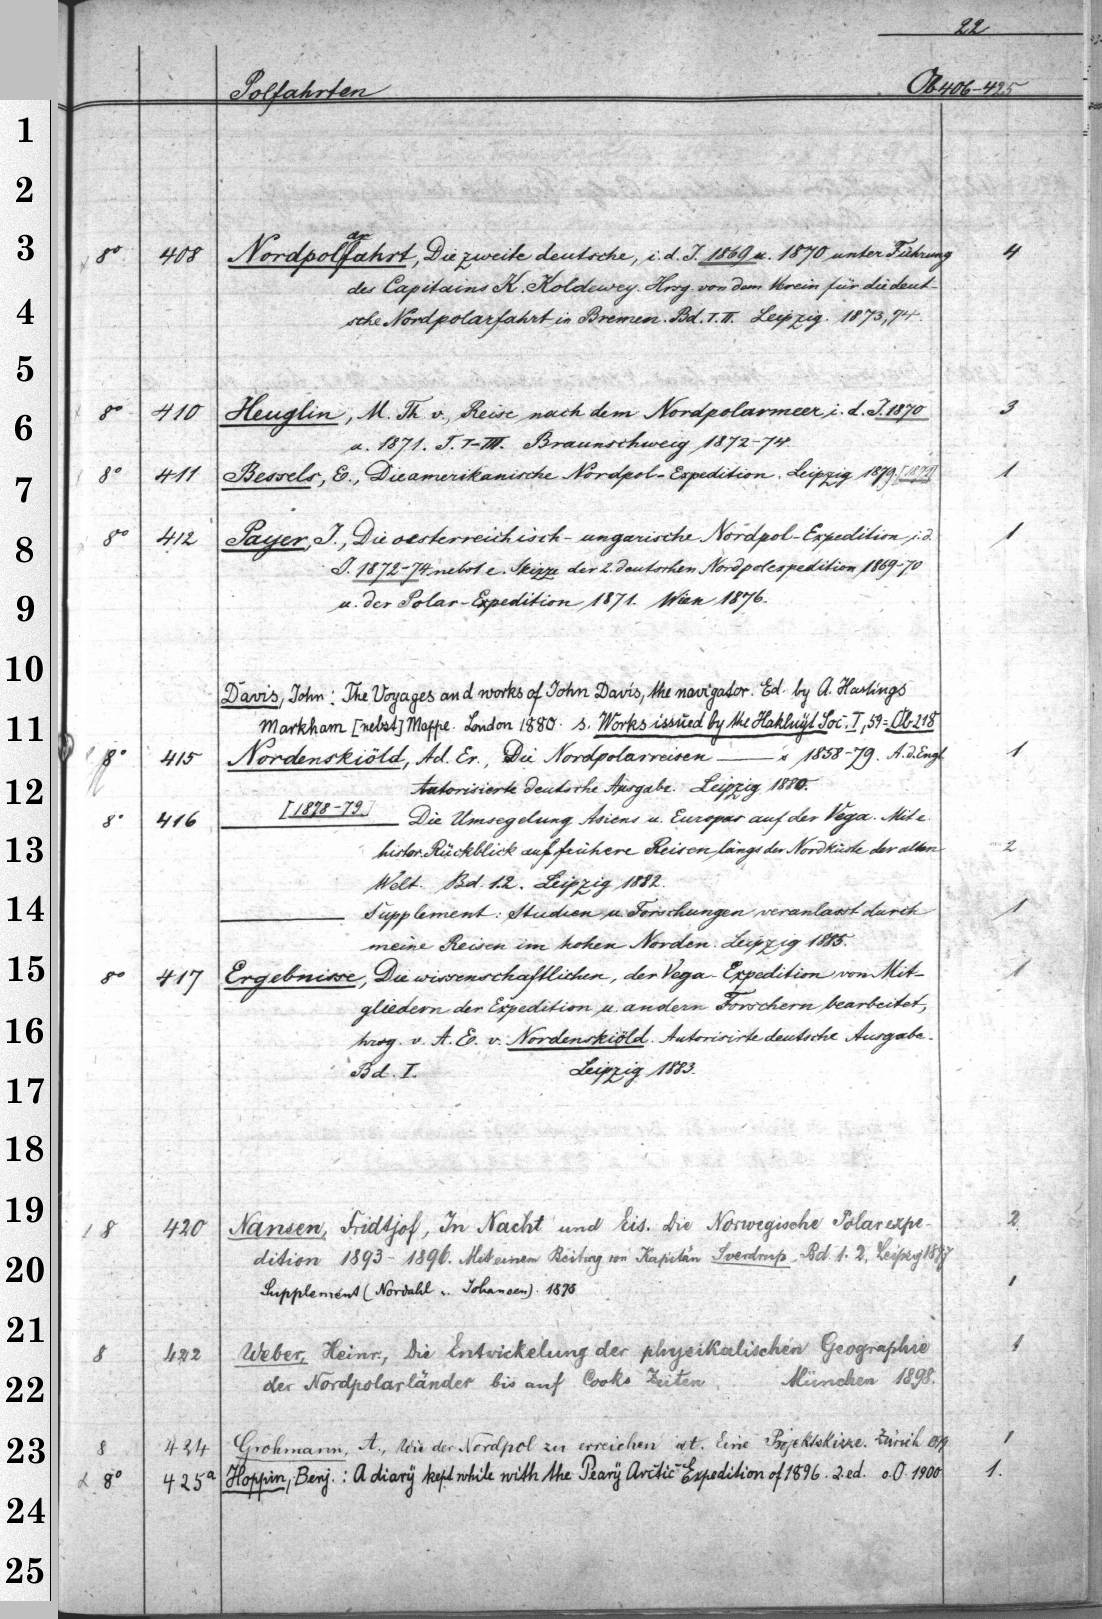 22
Polfahrten Ob 406-425
1
2
3 8° 408 Nordpolarfahrt, Die zweite deutsche, i. d. J. 1869 u. 1870 unter Führung 4
des Capitains K. Koldewey. Hrsg. von dem Verein für die deut-
4 sche Nordpolarfahrt in Bremen. Bd. I. II. Leipzig. 1873,74.
5
6 8° 410 Heuglin, M. Th. v., Reise nach dem Nordpolarmeer i. d. J. 1870 3
u. 1871. T. I-III. Braunschweig 1872-74.
7 8° 411 Bessels, E., Die amerikanische Nordpol-Expedition. Leipzig 1879. 1
8 8° 412 Payer, J., Die oesterreichisch-ungarische Nordpol-Expedition i. d. 1
J. 1872-74 nebst e. Skizze der 2. deutschen Nordpolexpedition 1869-70
9 u. der Polar-Expedition 1871. Wien 1876.
10
Davis, John: The Voyages and works of John Davis, the navigator. Ed. by A. Hastings
11 Markham [nebst] Mappe. London 1880. s. Works issued by the Hakluyt Soc. I, 59 = Ob 218
8° 415 Nordenskiöld, Ad. Er., Die Nordpolarreisen —— s 1858-79. A. d. Engl. 1
12 Autorisierte deutsche Ausgabe. Leipzig 1880.
8° 416 [1878-79] Die Umsegelung Asiens u. Europas auf der Vega. Mit e.
13 histor. Rückblick auf frühere Reisen längs der Nordküste der alten 2
Welt. Bd. 1.2. Leipzig 1882.
14 Supplement: Studien u. Forschungen veranlasst durch 1
meine Reisen im hohen Norden. Leipzig 1885.
15 8° 417 Ergebnisse, Die wissenschaftlichen, der Vega-Expedition von Mit- 1
gliedern der Expedition u. andern Forschern bearbeitet,
16 hrsg. v. A. E. v. Nordenskiöld. Autorisirte deutsche Ausgabe.
Bd. I. Leipzig 1883.
17
18
19 8 420 Nansen, Fridtjof, In Nacht und Eis. Die Norwegische Polarexpe- 2
20 dition 1893-1896. Mit einem Beitrag von Kapitän Sverdrup. Bd. 1. 2. Leipzig 1897
Supplement (Nordahl u. Johansen). 1
21 8 422 Weber, Heinr., Die Entwickelung der physikalischen Geographie 1
22 der Nordpolarländer bis auf Cooks Zeiten. München 1898.
23 8 424 Grohmann, A., Wie der Nordpol zu erreichen ist. Eine Projektskizze. Zürich 1
8° 425a Hoppin, Benj.: A diary kept while with the Peary Arctic Expedition of 1896. 2. ed. o.O. 1900 1.
24
25